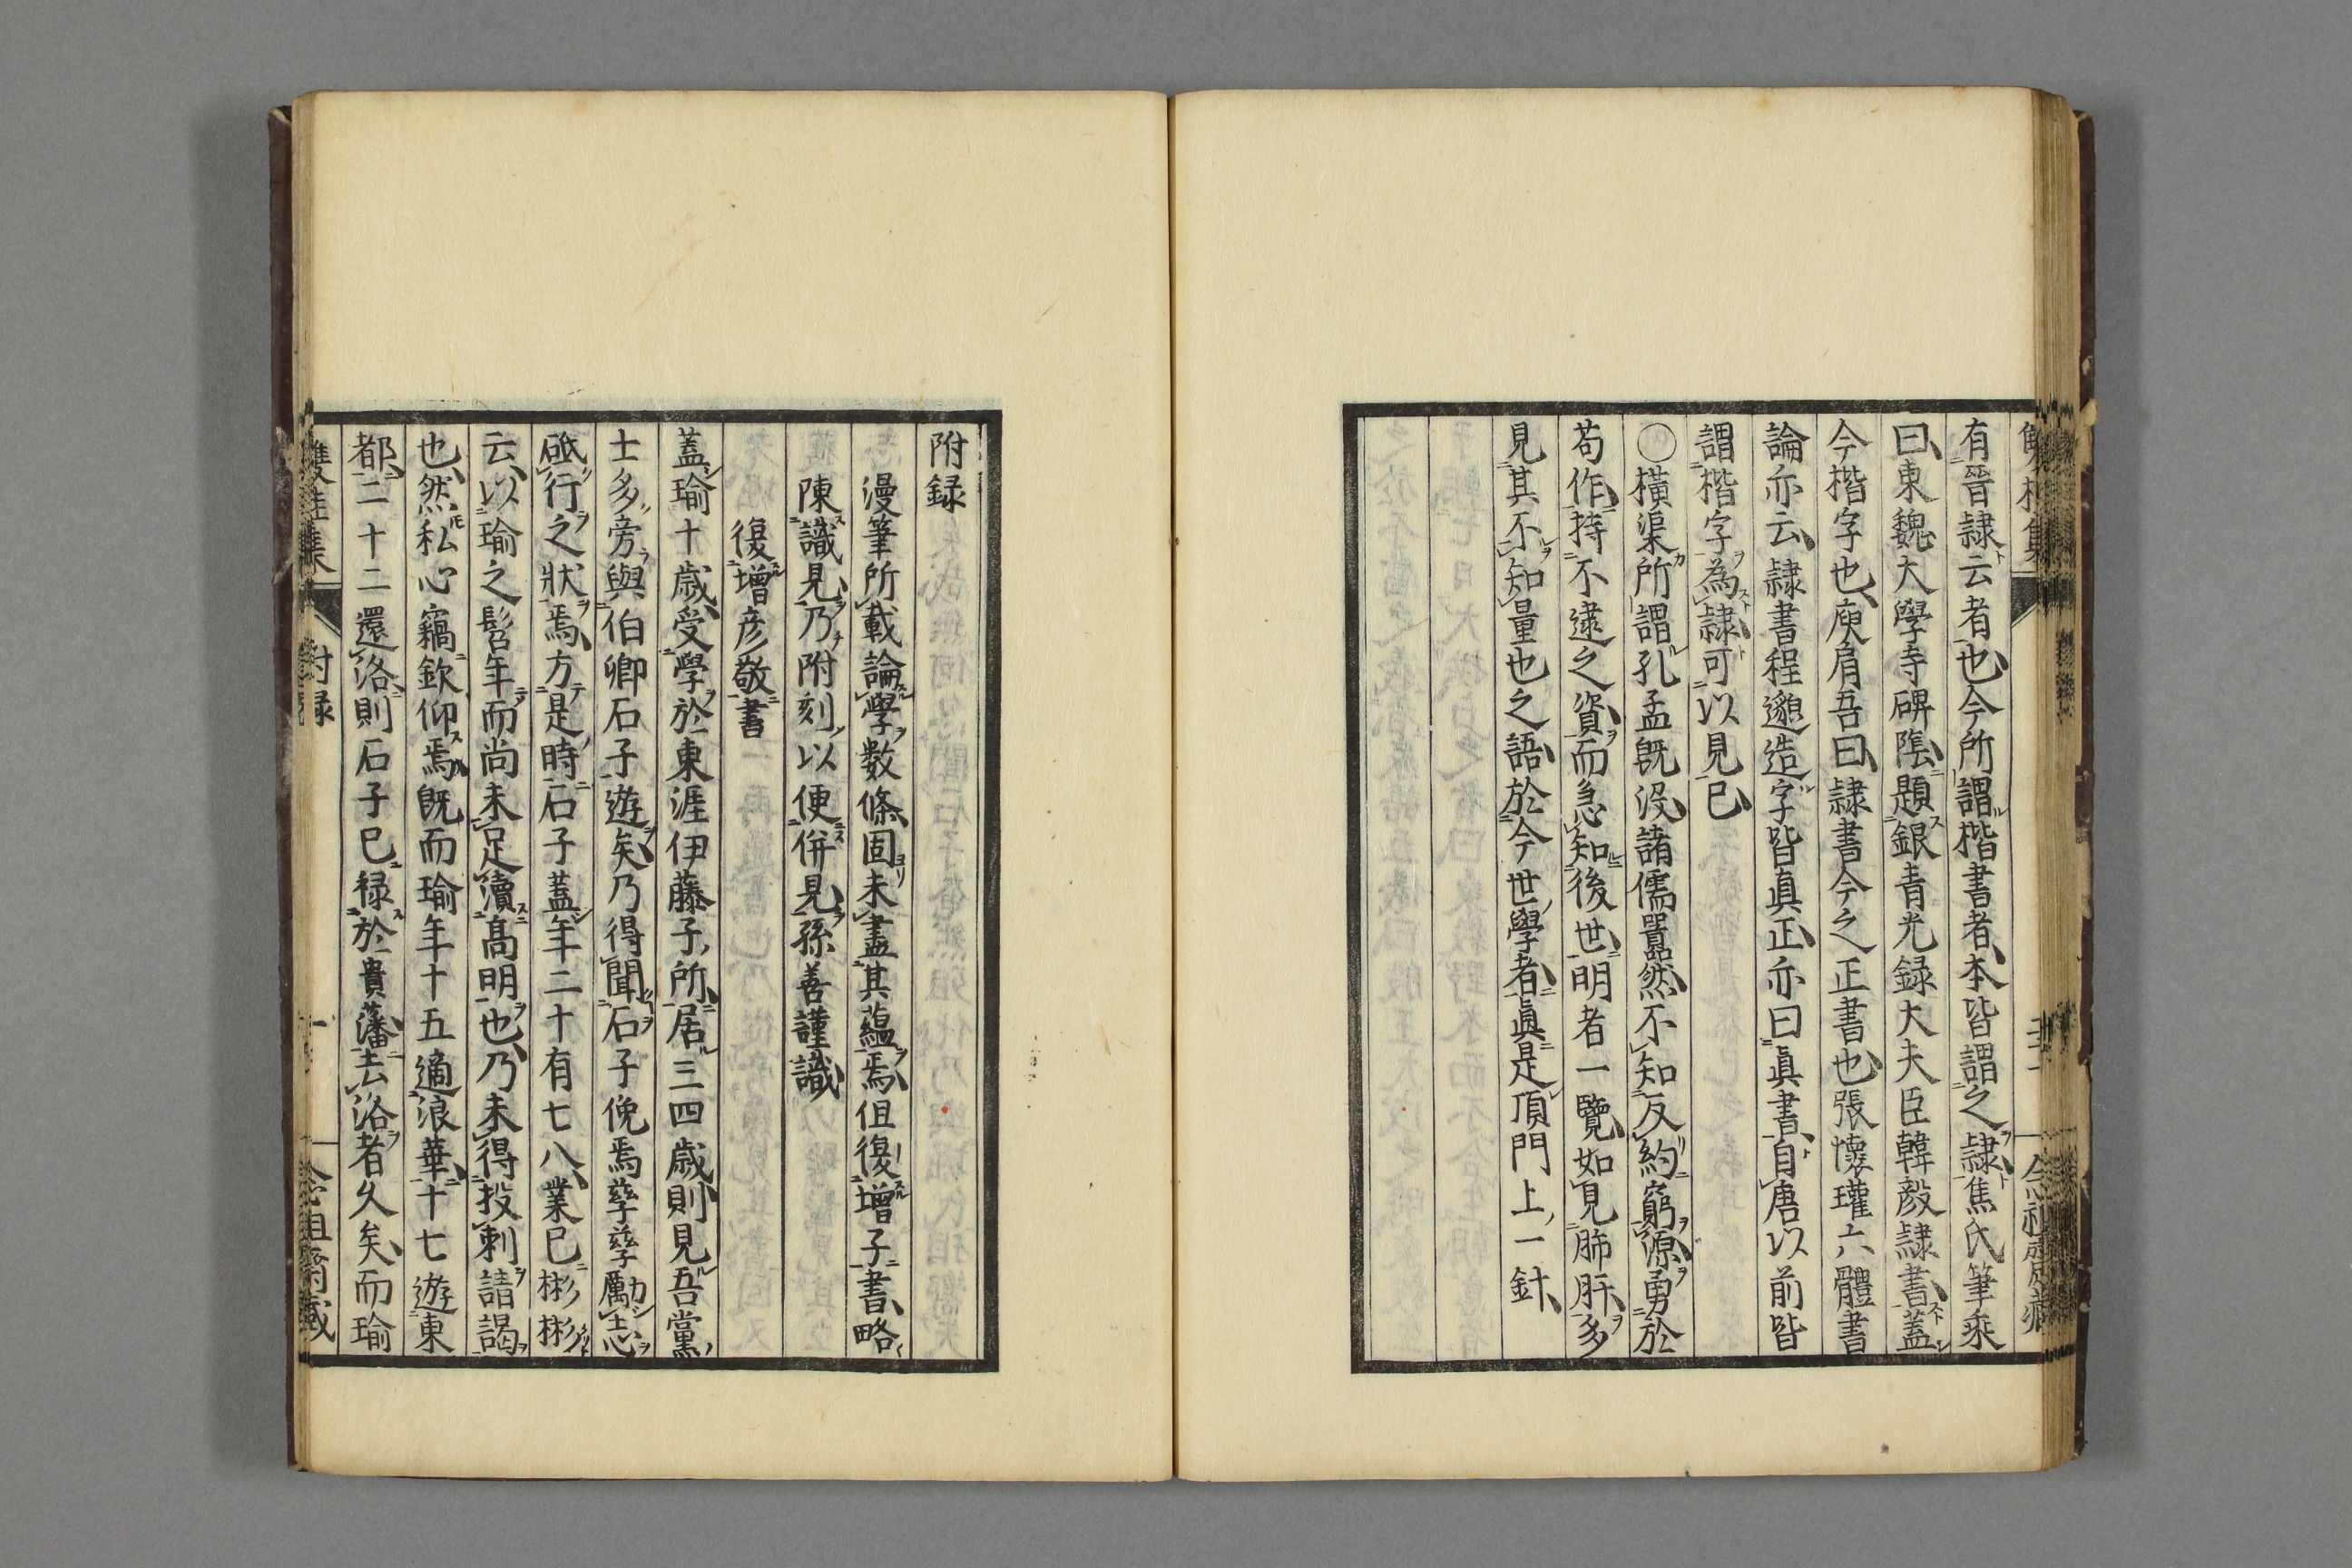 有晉隷云者也今所謂楷書者本皆謂之隷焦氏筆乘
曰東魏大學寺碑陰題銀青光録大夫臣韓毅隷書蓋
今楷字也庾肩吾曰隷書今之正書也張懷瓘六體書
論亦云隷書程邈造字皆真正亦曰眞書自唐以前皆
謂楷字為隷可以見已
〇橫渠所謂孔孟既没諸儒囂然不知反約窮源勇於
苟作持不逮之資而急知後世明者一覽如見肺肝多
見其不知量也之語於今世學者眞是頂門上一針
附録
漫筆所載論學数條固未盡其蘊焉但復增子書略
陳識見乃附刻以便併見孫善謹識
復增彦敬書
蓋瑜十歳受學於東涯伊藤子所居三四歳則見吾黨
士多旁與伯卿石子遊矣乃得聞石子俛焉孳孳勵志
砥行之狀焉方是時石子蓋年二十有七八業已彬彬
云以瑜之髫年而尚未足瀆髙明也乃未得投刺請謁
也然私心竊欽仰焉既而瑜年十五適浪華十七遊東
都二十二還洛則石子已禄於貴藩去洛者久矣而瑜
雙桂集
附録